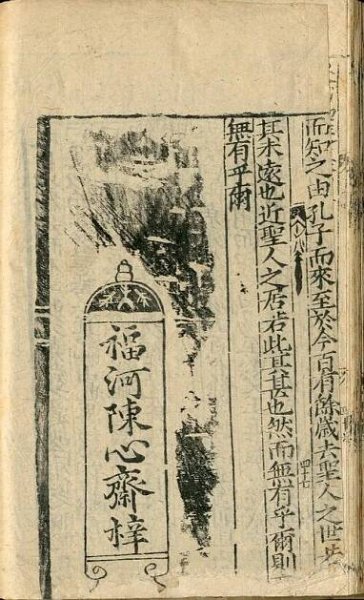 而知之由孔子而來至於今百有餘歲去聖人之世
其未遠也近聖人之居若此其甚也然而無有乎爾則
無有乎爾
四十七
福河陳心齋梓